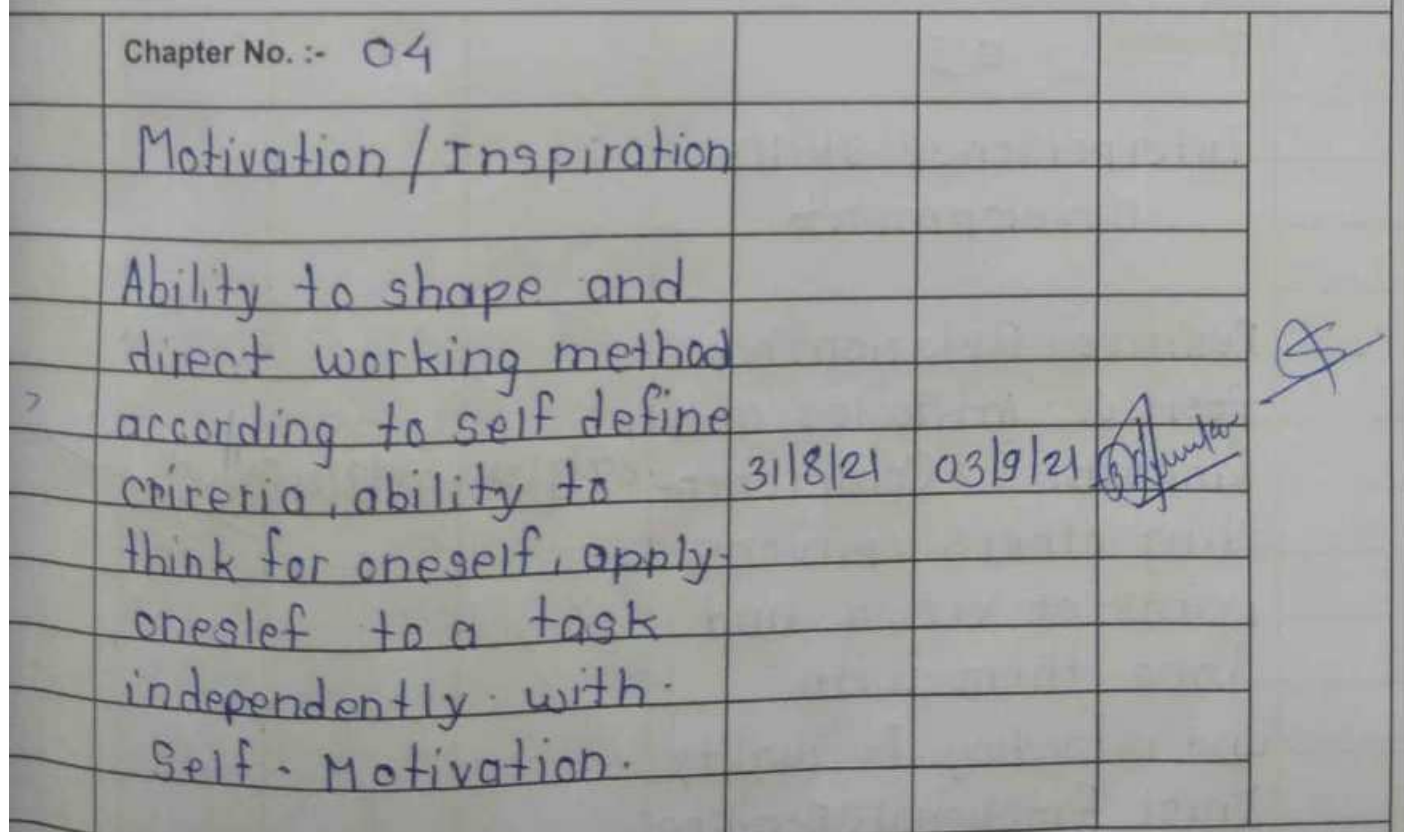 Chapter No. :- 04
Motivation / Inspiration
Ability to shape and
direct working method
according to self define
crireria, ability to 31/8/21 03/9/21
think for oneself, apply
oneslef to a task
independently. with.
Self - Motivation.